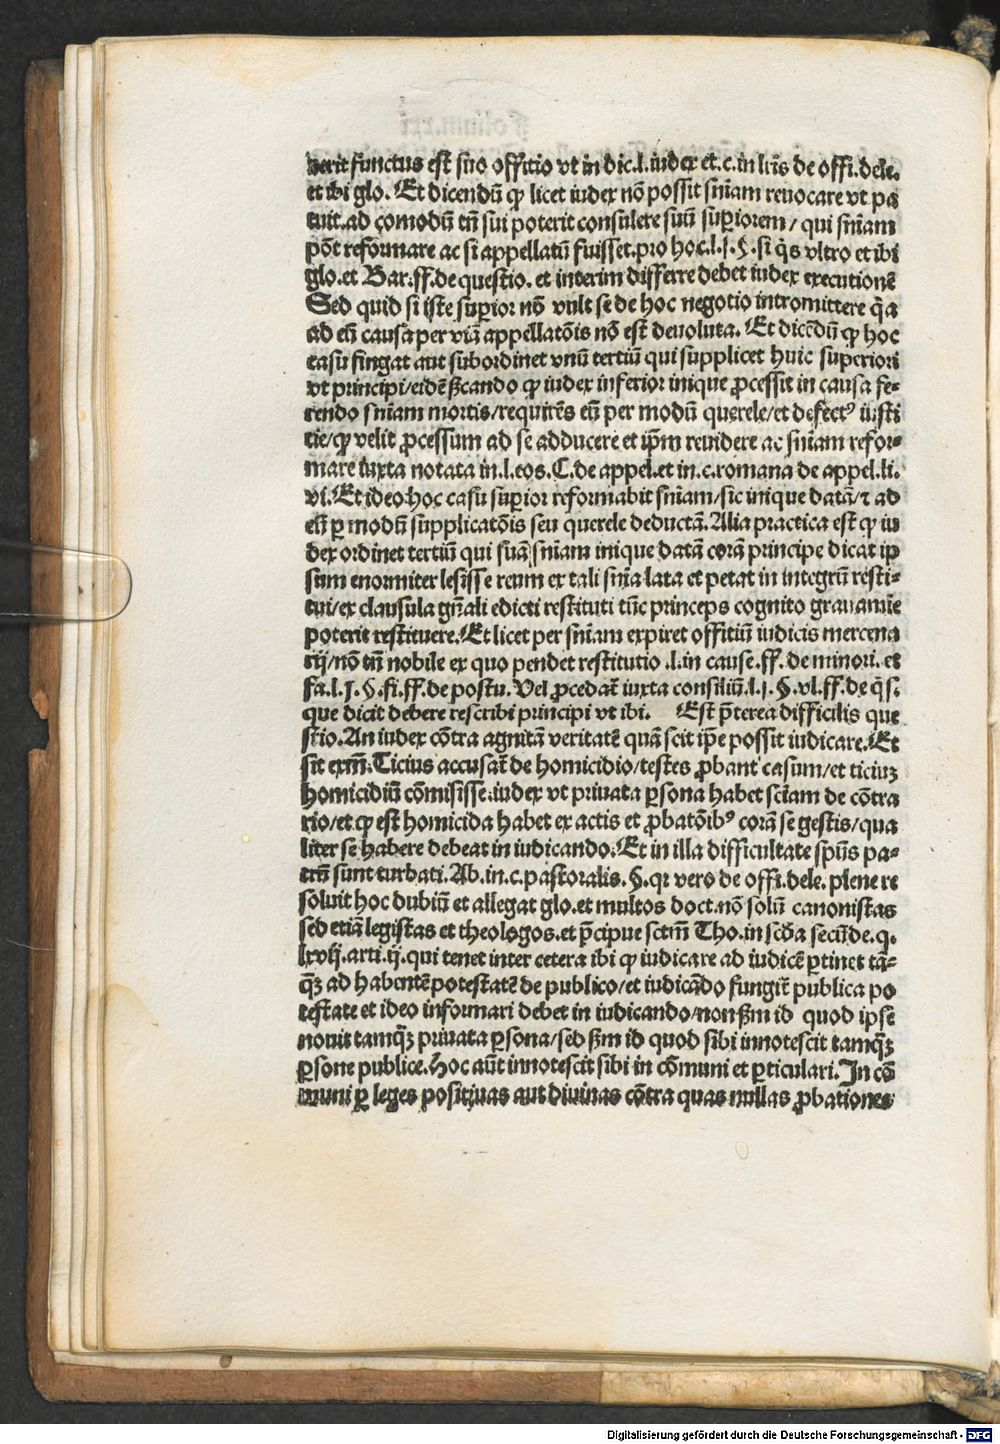 verit functus est suo offitio vt in dic.l.iudex et.c.in lr̄is de offi.dele.
et ibi glo. Et dicendū ꝙ licet iudex nō possit sn̄iam reuocare vt pa
tuit.ad comodū tn̄ sui poterit consulere suū suꝑiorem/ qui sn̄iam
pōt reformare ac si appellatū fuisset.pro hoc.l.j.§.si q̄s vltro et ibi
glo.et Bar.ff.de questio. et interim differre debet iudex executionē
Sed quid si iste suꝑior nō vult se de hoc negotio intromittere q̄a
ad eū causa per viā appellatōis nō est deuoluta. Et dicēdū ꝙ hoc
casu fingat aut subordinet vnū tertiū qui supplicet huic superiori
vt principi/eidē ßcando ꝙ iudex inferior inique ꝓcessit in causa fe⸗
rendo sn̄iam mortis/requirēs eū per modū querele/et defectꝰ iusti
tie/ꝙ velit ꝓcessum ad se adducere et ip̄m reuidere ac sn̄iam refor⸗
mare iuxta notata in.l.eos.C.de appel.et in.c.romana de appel.li.
vi.Et ideo hoc casu suꝑior reformabit sn̄iam/sic inique datā/⁊ ad
eū ꝑ modū supplicatōis seu querele deductā.Alia practica est ꝙ iu
dex ordinet tertiū qui suā sn̄iam inique datā corā principe dicat ip
sum enormiter lesisse reum ex tali sn̄ia lata et petat in integrū resti⸗
tui/ex clausula gn̄ali edicti restituti tūc princeps cognito grauamīe
poterit restituere.Et licet per sn̄iam expiret offitiū iudicis mercena
rij/nō tn̄ nobile ex quo pendet restitutio .l.in cause.ff.de minori. et
fa.l.j.§.fi.ff.de postu. Vel ꝓcedat̄ iuxta consiliū.l.j.§.vl.ff.de q̄s.
que dicit debere rescribi principi vt ibi. Est p̄terea difficilis que
stio.An iudex cōtra agnitā veritatē quā scit ip̄e possit iudicare.Et
sit exm̄.Ticius accusat̄ de homicidio/testes ꝓbant casum/et ticiuꝫ
homicidiū cōmisisse.iudex vt priuata ꝑsona habet sciam de cōtra
rio/et ꝙ est homicida habet ex actis et ꝓbatōibꝰ corā se gestis/qua
liter se habere debeat in iudicando.Et in illa difficultate spūs pa⸗
trū sunt turbati. Ab.in.c.pastoralis.§.qr vero de offi.dele. plene re
soluit hoc dubiū et allegat glo.et multos doct.nō solū canonistas
sed etiā legistas et theologos.et p̄cipue sctm̄ Tho.in scd̄a secūde.q.
lxvij.arti.ij.qui tenet inter cetera ibi ꝙ iudicare ad iudicē ꝑtinet tā⸗
q̄ꝫ ad habentē potestatē de publico/et iudicādo fungit̄ publica po
testate et ideo informari debet in iudicando/non ßm id quod ipse
nouit tamq̄ꝫ priuata ꝑsona/sed ßm id quod sibi innotescit tamq̄ꝫ
ꝑsone publice.Hoc aūt innotescit sibi in cōmuni et ꝑticulari.In cō
muni ꝑ leges positiuas aut diuinas cōtra quas nullas ꝓbationes
Digitalisierung gefördert durch die Deutsche Forschungsgemeinschaft - DFG